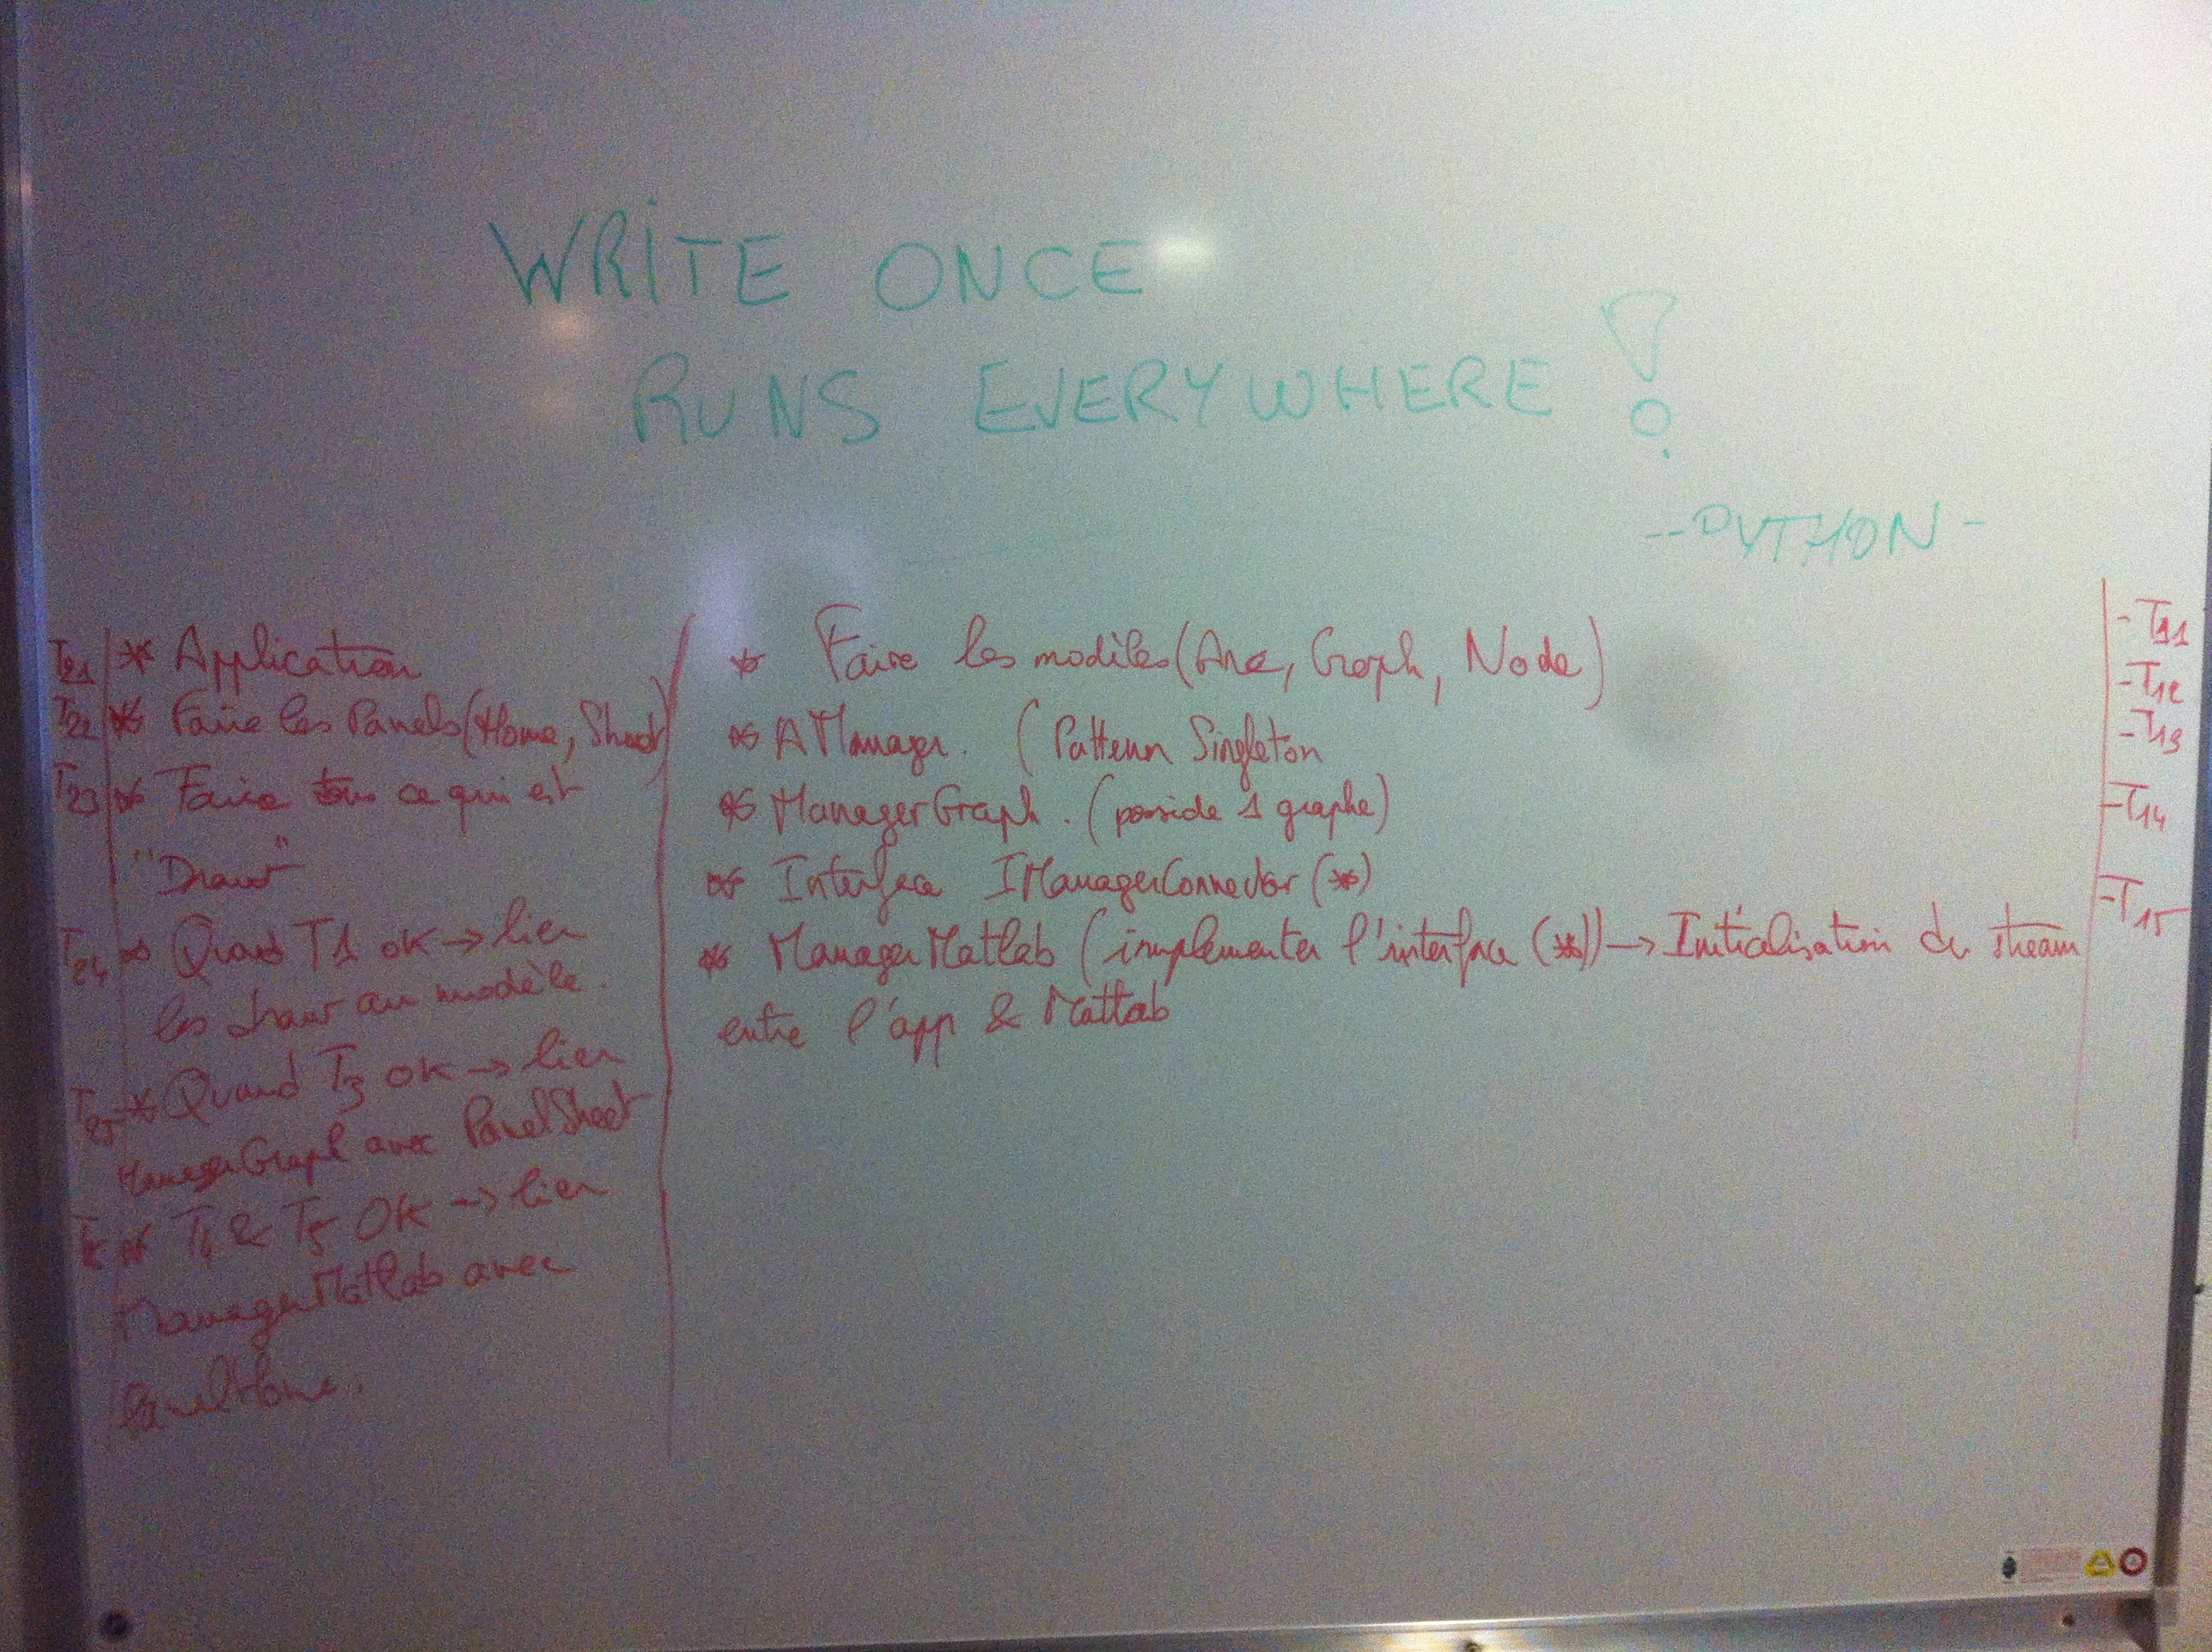 WRITE ONCE
RUNS EVERYWHERE !
-- PYTHON -
T21 * Application
T22 * Faire les Panels (Home, Sheet)
T23 * Faire tous ce qui est
"Draw"
T24 * Quand T1 ok → lier
les draw au modèle.
T25 * Quand T3 ok → lier
ManagerGraph avec PanelSheet
* T4 & T5 OK → lier
ManagerMatlab avec
PanelHome.
* Faire les modèles (Arc, Graph, Node)
* AManager. (Pattern Singleton
* ManagerGraph. (posside 1 graphe)
* Interface IManagerConnector (*)
* ManagerMatlab (implementer l'interface (*)) → Initialisation du stream
entre l'app & Matlab
- T11
- T12
- T13
- T14
- T15